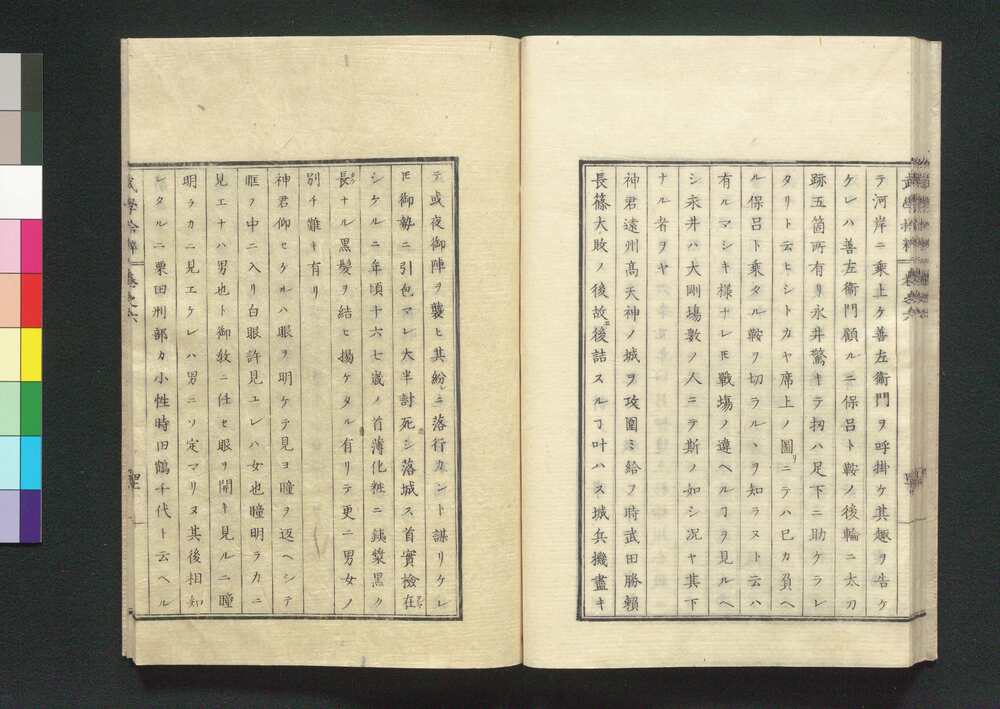 テ河岸ニ乗上ケ善左衛門ヲ呼掛ケ其趣ヲ告ケ
ケレハ善左衛門顧ルニ保呂ト鞍ノ後輪ニ太刀
跡五箇所有リ永井驚キテ扨ハ足下ニ助ケラレ
タリト云ヒシトカヤ席上ノ圖リニテハ已カ負ヘ
ル保呂ト乗タル鞍ヲ切ラルヽヲ知ラヌト云ハ
有ルマシキ様ナレ𪜈戰場ノ違ヘルヿヲ見ルヘ
シ永井ハ大剛場數ノ人ニテ斯ノ如シ况ヤ其下
ナル者ヲヤ
神君遠州髙天神ノ城ヲ攻圍ミ給フ時武田勝頼
長篠大敗ノ後故ニ後詰スルヿ叶ハス城兵機盡キ
テ或夜御陣ヲ襲ヒ其紛レニ落行カント謀リケレ
𪜈御勢ニ引包マレ大半討死シ落城ス首實檢在
シケルニ年頃十六七歳ノ首薄化粧ニ銕漿黒ク
長ナル黒髪ヲ結ヒ揚ケタル有リテ更ニ男女ノ
別チ難キ有リ
神君仰セケルハ眼ヲ明ケテ見ヨ瞳ヲ返ヘシテ
眶ノ中ニ入リ白眼許見ユレハ女也瞳明ラカニ
見エナハ男也ト御教ニ任セ眼ヲ開キ見ルニ瞳
明ラカニ見エケレハ男ニソ定マリヌ其後相知
レタルニ栗田刑部カ小性時田鶴千代ト云ヘル
武學拾粹 卷之六